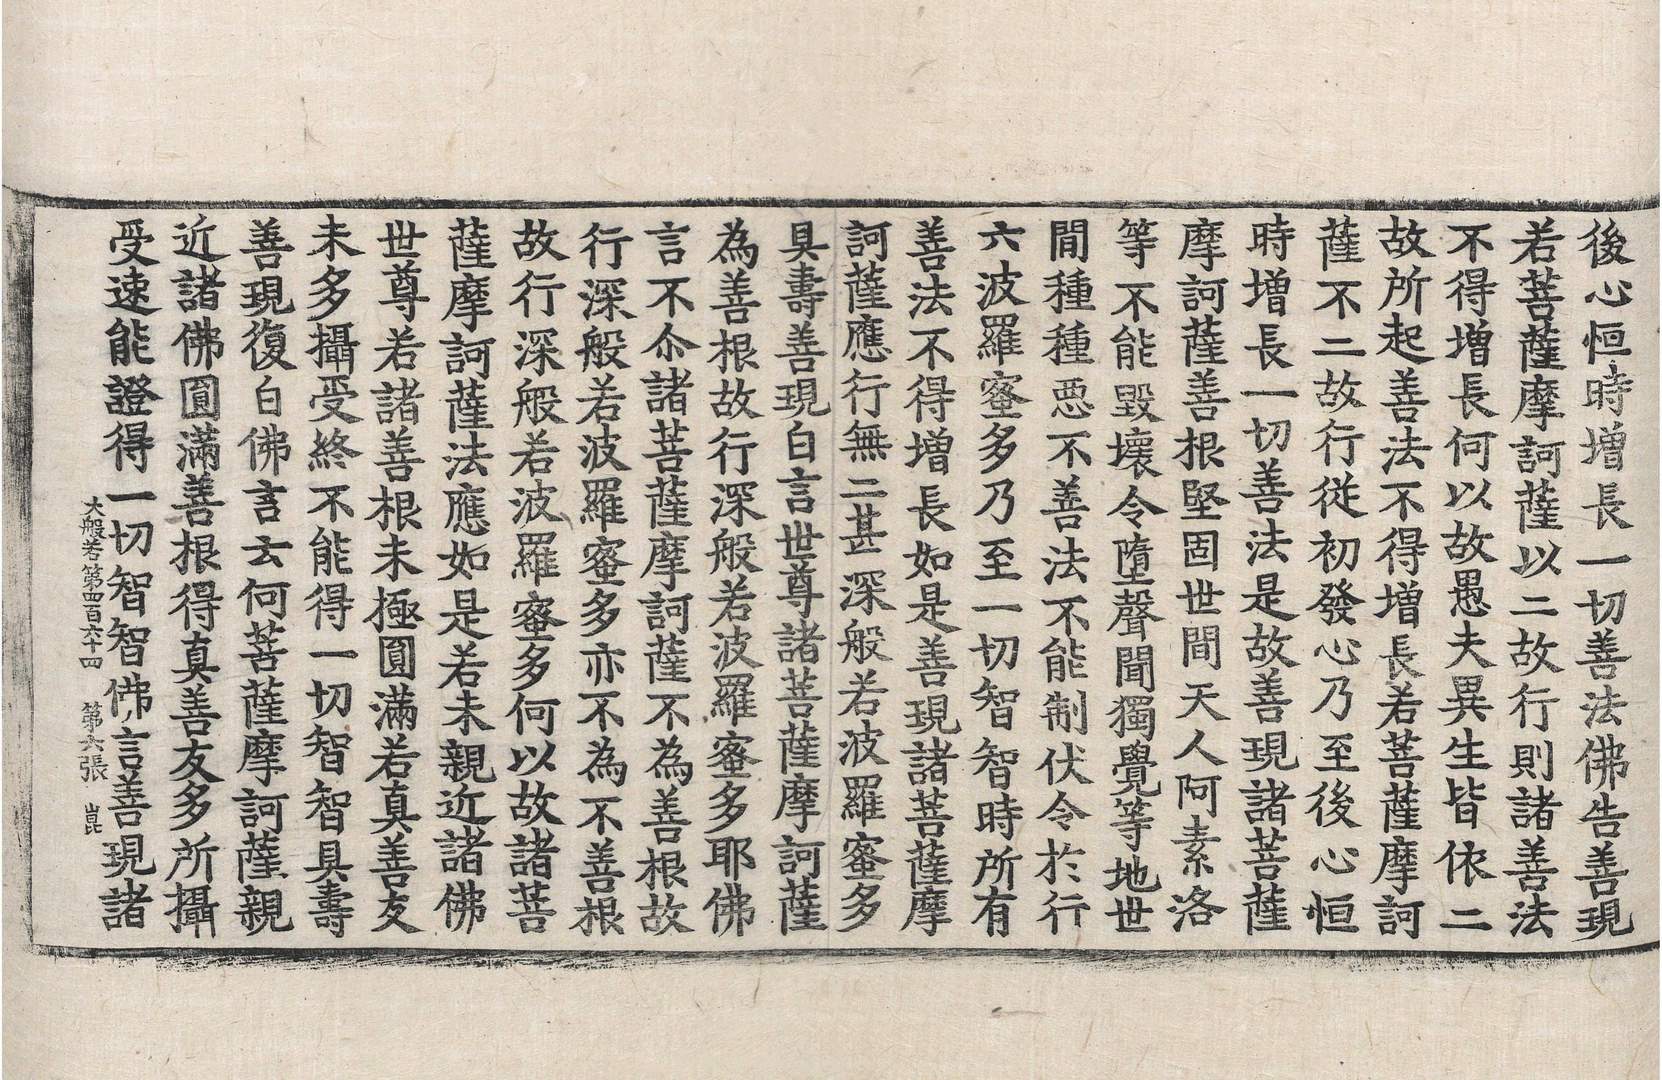 後心恒時增長一切善法佛告善現
若菩薩摩訶薩以二故行則諸善法
不得增長何以故愚夫異生皆依二
故所起善法不得增長若菩薩摩訶
薩不二故行從初發心乃至後心恒
時增長一切善法是故善現諸菩薩
摩訶薩善根堅固世間天人阿素洛
等不能毀壞令墮聲聞獨覺等地世
間種種惡不善法不能制伏令於行
六波羅蜜多乃至一切智智時所有
善法不得增長如是善現諸菩薩摩
訶薩應行無二甚深般若波羅蜜多
具壽善現白言世尊諸菩薩摩訶薩
為善根故行深般若波羅蜜多耶佛
言不尒諸菩薩摩訶薩不為善根故
行深般若波羅蜜多亦不為不善根
故行深般若波羅蜜多何以故諸菩
薩摩訶薩法應如是若未親近諸佛
世尊若諸善根未極圓滿若真善友
未多攝受終不能得一切智智具壽
善現復白佛言云何菩薩摩訶薩親
近諸佛圓滿善根得真善友多所攝
受速能證得一切智智佛言善現諸
大般若第四百六十四 第六張 崑